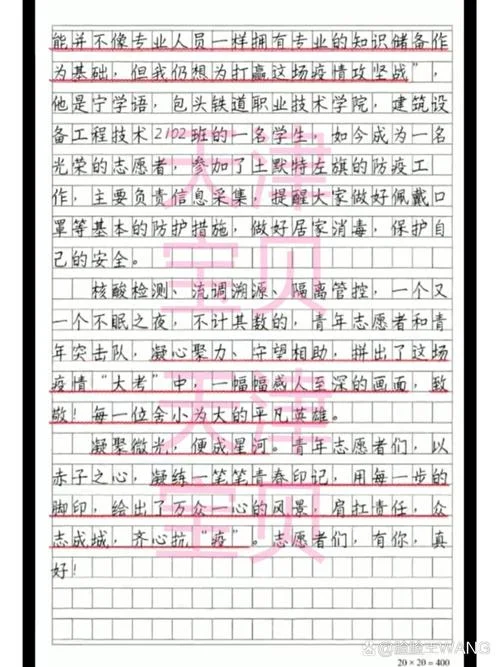 能并不像专业人员一样拥有专业的知识储备作
为基础，但我仍想为打赢这场疫情攻坚战”，
他是宁学语，包头铁道职业技术学院，建筑设
备工程技术2102班的一名学生，如今成为一名
光荣的志愿者，参加了土默特左旗的防疫工
作，主要负责信息采集，提醒大家做好佩戴口
罩等基本的防护措施，做好居家消毒，保护自
己的安全。
核酸检测、流调溯源、隔离管控，一个又
一个不眠之夜，不计其数的，青年志愿者和青
年突击队，凝心聚力、守望相助，拼出了这场
疫情“大考”中，一幅幅感人至深的画面，致
敬！每一位舍小为大的平凡英雄。
凝聚微光，便成星河。青年志愿者们，以
赤子之心，凝练一笔笔青春印记，用每一步的
脚印，绘出了万众一心的风景，肩扛责任，众
志成城，齐心抗“疫”。志愿者们，有你，真
好！
天津
宝贝
天津
宝贝
20×20=400